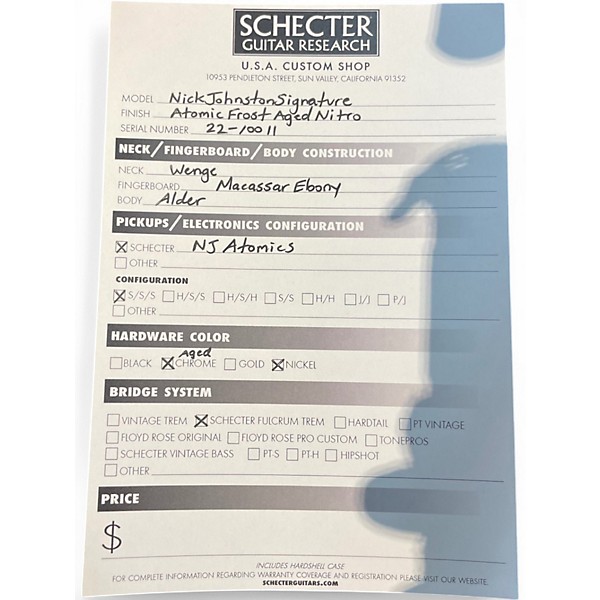 SCHECTER
GUITAR RESEARCH
U.S.A. CUSTOM SHOP
10953 PENDLETON STREET, SUN VALLEY, CALIFORNIA 91352
MODEL Nick Johnston Signature
FINISH Atomic Frost Aged Nitro
SERIAL NUMBER 22-10011
NECK/FINGERBOARD/BODY CONSTRUCTION
NECK Wenge
FINGERBOARD Macassar Ebony
BODY Alder
PICKUPS/ELECTRONICS CONFIGURATION
SCHECTER NJ Atomics
OTHER
CONFIGURATION
S/S/S H/S/S H/S/H S/S H/H J/J P/J
OTHER
HARDWARE COLOR
Aged
BLACK CHROME GOLD NICKEL
BRIDGE SYSTEM
VINTAGE TREM SCHECTER FULCRUM TREM HARDTAIL PT VINTAGE
FLOYD ROSE ORIGINAL FLOYD ROSE PRO CUSTOM TONEPROS
SCHECTER VINTAGE BASS PT-S PT-H HIPSHOT
OTHER
PRICE
$
INCLUDES HARDSHELL CASE
FOR COMPLETE INFORMATION REGARDING WARRANTY COVERAGE AND REGISTRATION PLEASE VISIT OUR WEBSITE.
SCHECTERGUITARS.COM